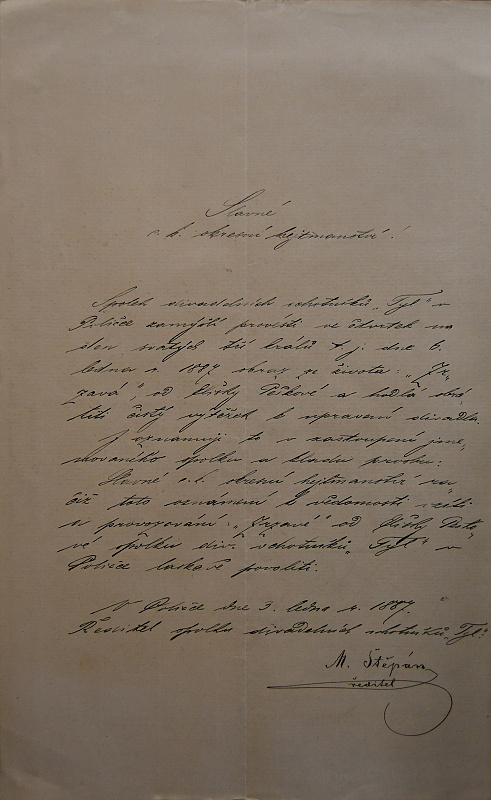 Slavné
c. k. okresní hejtmanství!
Spolek divadelních ochotníků „Tyl“ v
Poličce zamýšlí provésti ve čtvrtek na
den svatých tří králů t. j. dne 6.
ledna r. 1887 obraz ze života: „Jr-
zavá“, od Elišky Peškové a hodlá obrá-
titi čistý výtěžek k upravení divadla.
I oznamuji to v zastoupení jme-
novaného spolku a kladu prosbu:
Slavné c. k. okresní hejtmanství ra-
čiž toto oznámení k vědomosti vzíti
a provozování „Jrzavé“ od Elišky Peško-
vé spolku div. ochotníků „Tyl“ v
Poličce laskavě povoliti.
V Poličce dne 3. ledna r. 1887.
Ředitel spolku divadelních ochotníků „Tyl“
M. Štěpán
ředitel